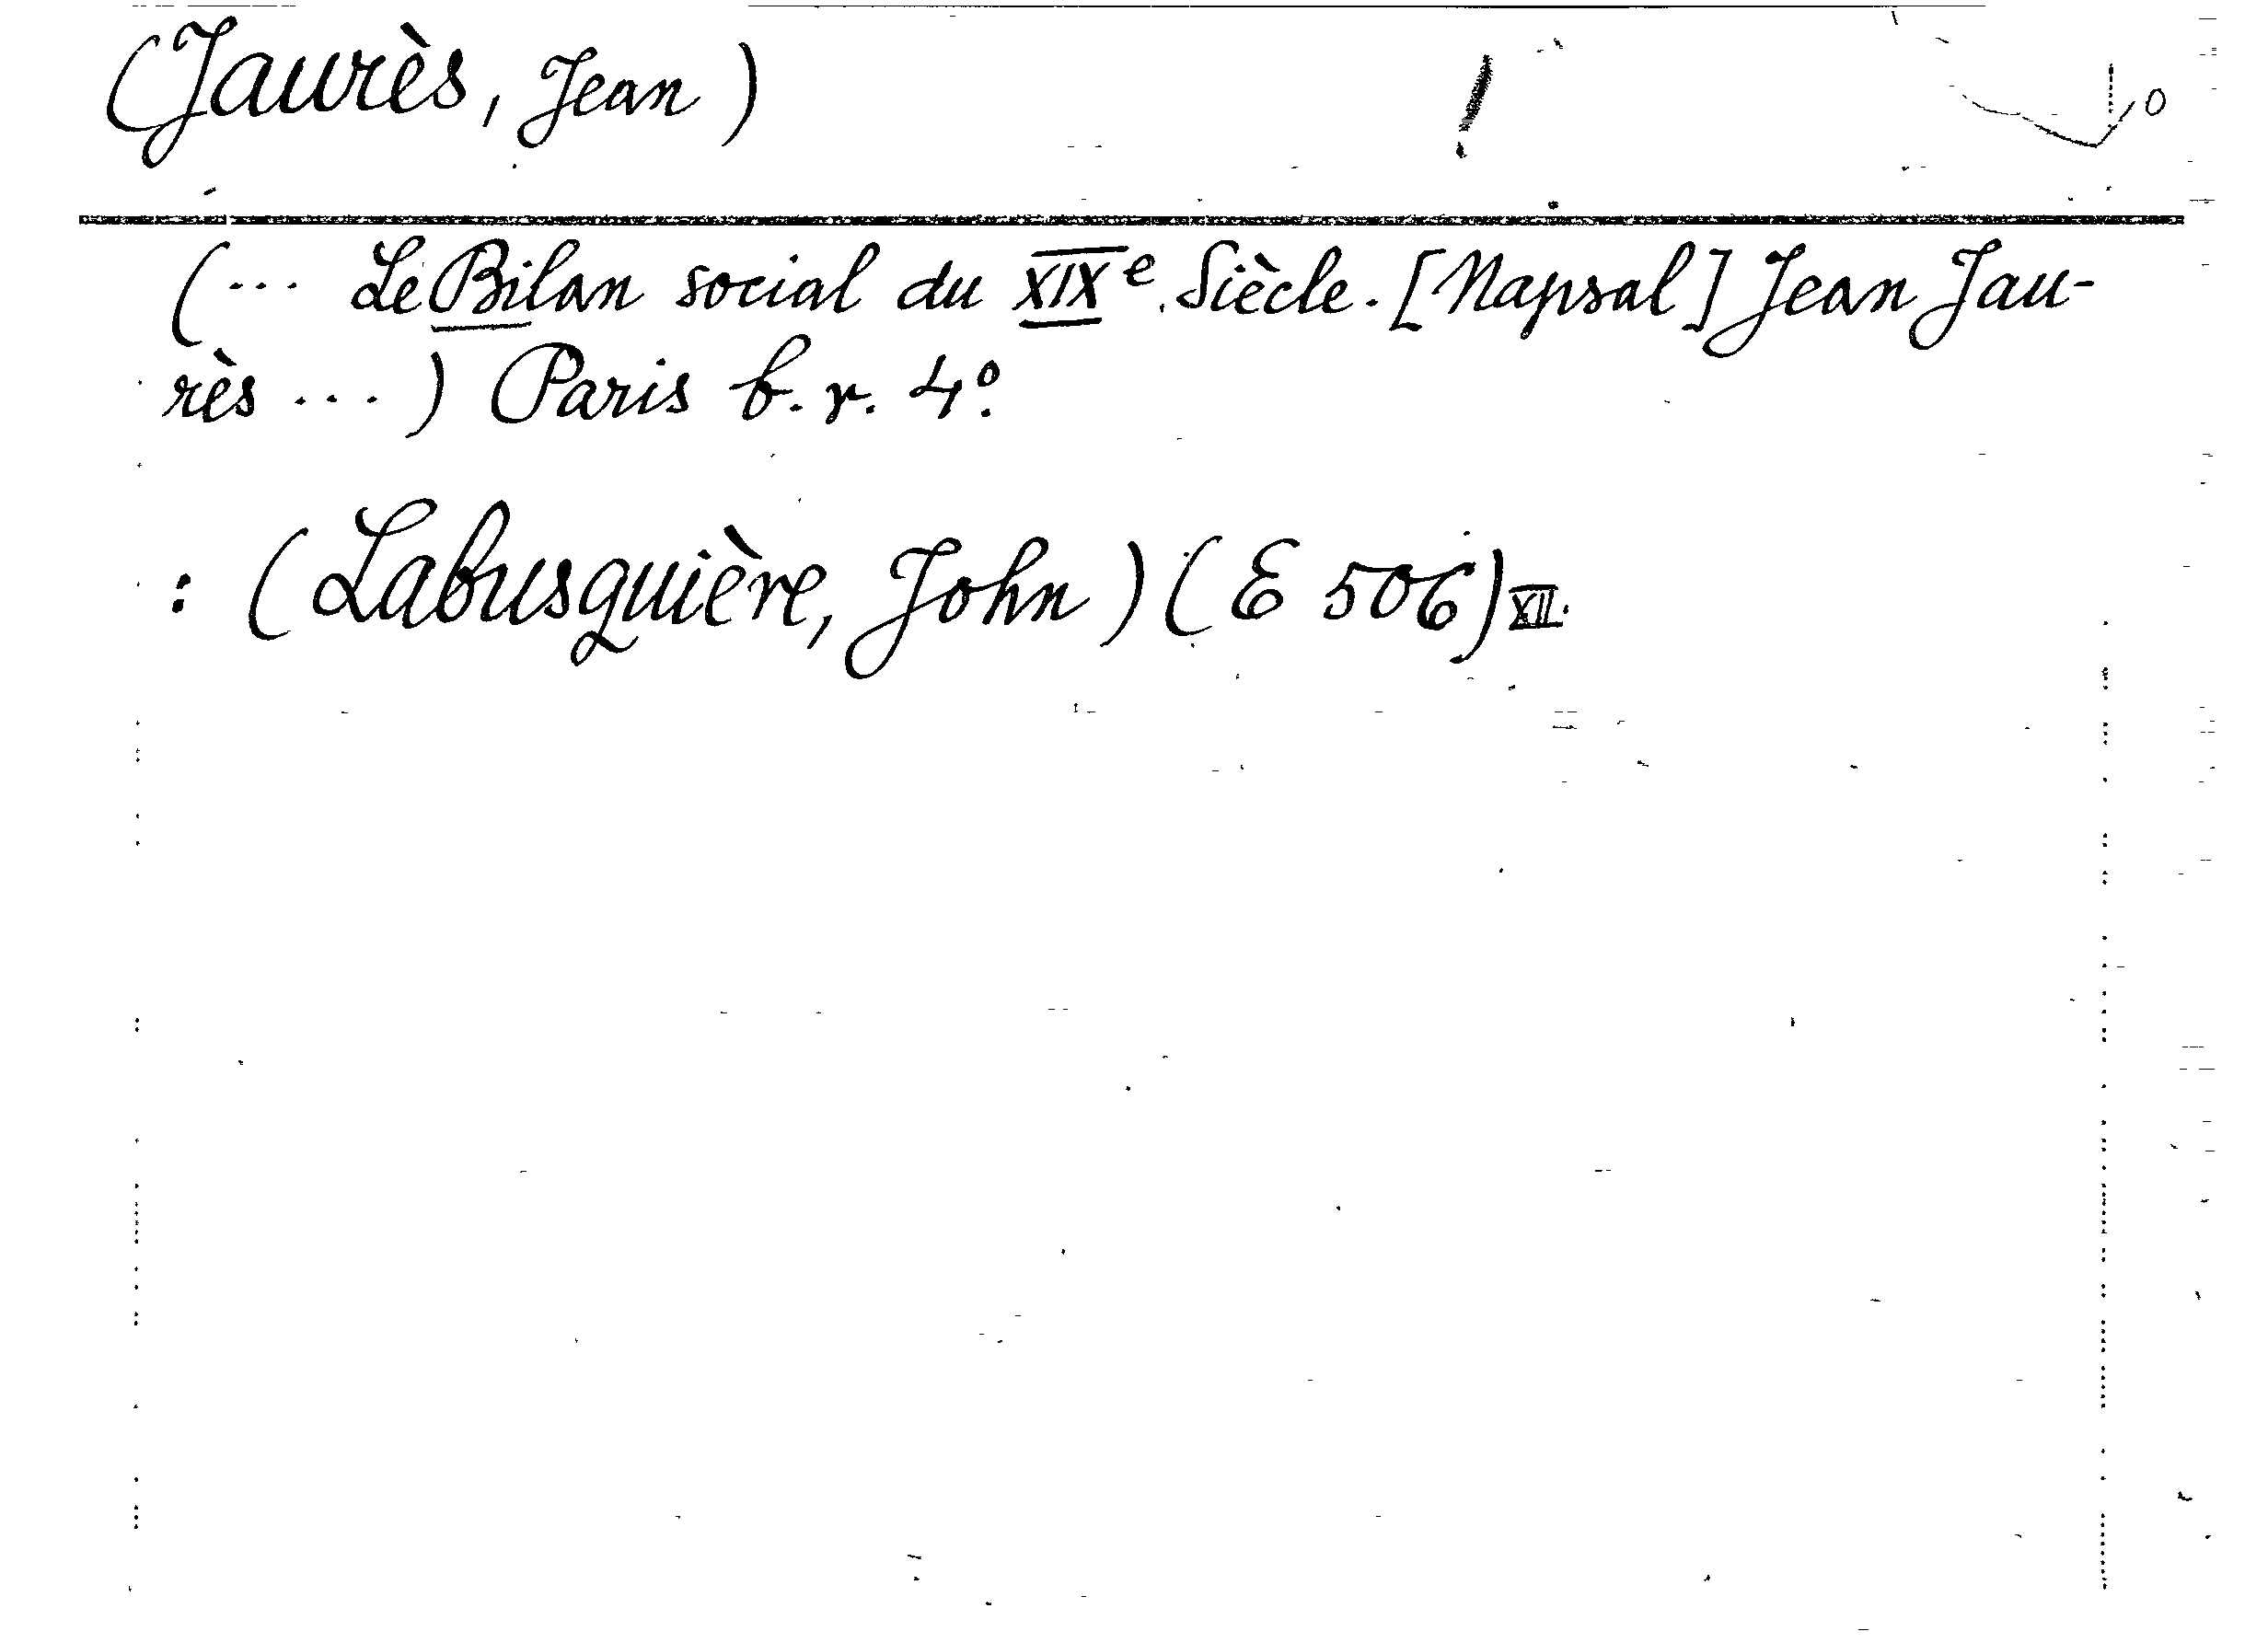 (Jaurès, Jean)
(... Le Bilan social du XIXe Siècle. [Napsal] Jean Jau-
rès ...) Paris b. r. 4°.
: (Labusquière, John) (E 506) XII.